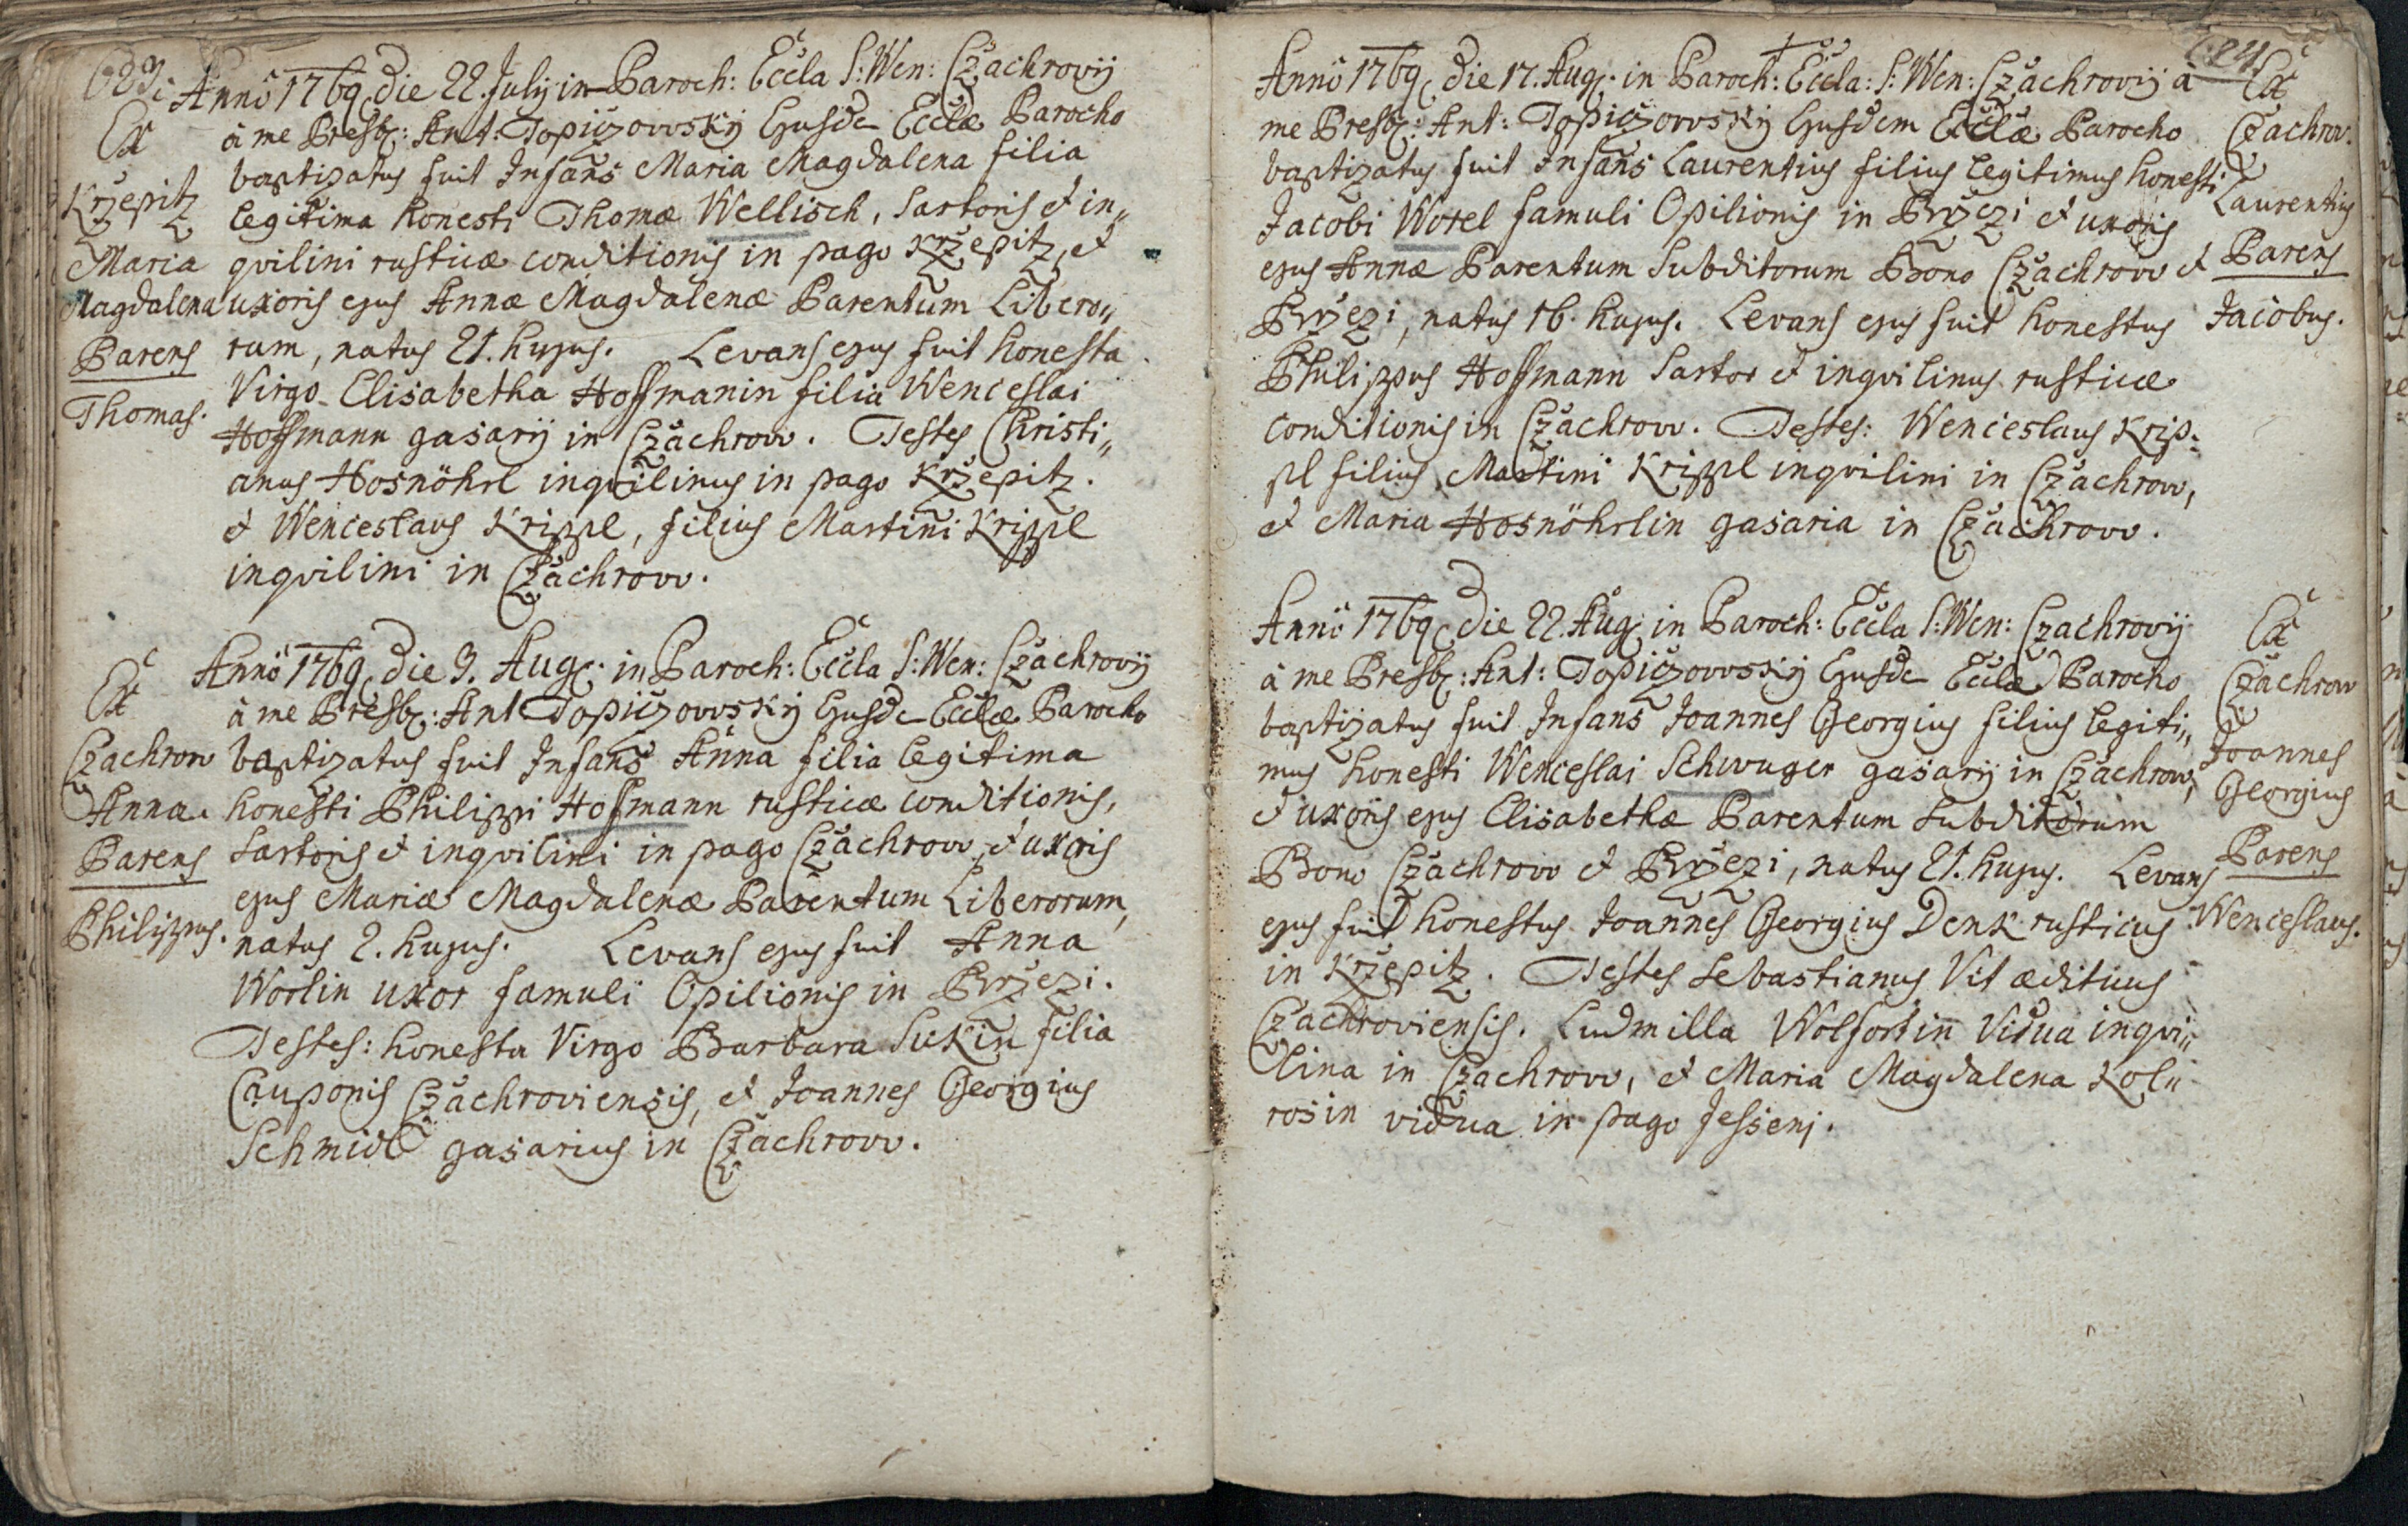 623.
Ex
Krzepitz
Maria
Magdalena
Parens
Thomas.
Anno 1769 die 22. July in Paroch: Eccla S: Wen: Czachrovij
à me Presb: Ant: Topiczovvskij Ejusde Ecclæ Parocho
baptizatus fuit Infans Maria Magdalena filia
legitima honesti Thomæ Wellisch, Sartoris et in„
qvilini rusticæ conditionis in pago Krzepitz, et
uxoris ejus Annæ Magdalenæ Parentum Libero„
rum, natus 21. hujus. Levans ejus fuit honesta
Virgo Elisabetha Hoffmanin filia Wenceslai
Hoffmann gasarij in Czachrovv. Testes Christi„
anus Hosnöhrl inqvilinus in pago Krzepitz.
et Wenceslaus Krippl, filius Martini Krippl
inqvilini in Czachrovv.
Ex
Czachrow
Anna.
Parens
Philippus.
Anno 1769 die 3. Aug: in Paroch: Eccla S: Wen: Czachrovij
à me Presb: Ant Topiczovvskij Ejusde Ecclæ Parocho
baptizatus fuit Infans Anna filia legitima
honesti Philippi Hoffmann rusticæ conditionis,
Sartoris et inqvilini in pago Czachrovv, et uxoris
ejus Mariæ Magdalenæ Parentum Liberorum,
natus 2. hujus. Levans ejus fuit Anna
Worlin uxor famuli Opilionis in Brzezi.
Testes: honesta Virgo Barbara Sukin filia
Cauponis Czachroviensis, et Joannes Georgius
Schmidt gasarius in Czachrovv.
624.
Anno 1769 die 17. Aug: in Paroch: Eccla: S: Wen: Czachrovij à
me Presb: Ant: Topiczovvskij Ejusdem Ecclæ Parocho
baptizatus fuit Infans Laurentius filius legitimus honesti
Jacobi Worel famuli Opilionis in Brzezi et uxoris
ejus Annæ Parentum Subditorum Bono Czachrovv et
Brzezi, natus 16. hujus. Levans ejus fuit honestus
Philippus Hoffmann Sartor et inqvilinus rusticæ
conditionis in Czachrovv. Testes: Wenceslaus Krip„
pl filius Martini Krippl inqvilini in Czachrovv,
et Maria Hosnöhrlin gasaria in Czachrovv.
Ex
Czachrov.
Laurentius
Parens
Jacobus.
Anno 1769 die 22. Aug: in Paroch: Eccla S: Wen: Czachrovij
à me Presb: Ant: Topiczovvskij Ejusde Ecclæ Parocho
baptizatus fuit Infans Joannes Georgius filius legiti„
mus honesti Wenceslai Schwuger gasarij in Czachrovv,
et uxoris ejus Elisabethæ Parentum Subditorum
Bono Czachrovv et Brzezi, natus 21. hujus. Levans
ejus fuit honestus Joannes Georgius Denk rusticus
in Krzepitz. Testes Sebastianus Vit ædituus
Czachroviensis. Ludmilla Wolfortin Vidua inqvi„
lina in Czachrovv, et Maria Magdalena Kola
rosin vidua in pago Jesseni.
Ex
Czachrow
Joannes
Georgius
Parens
Wenceslaus.